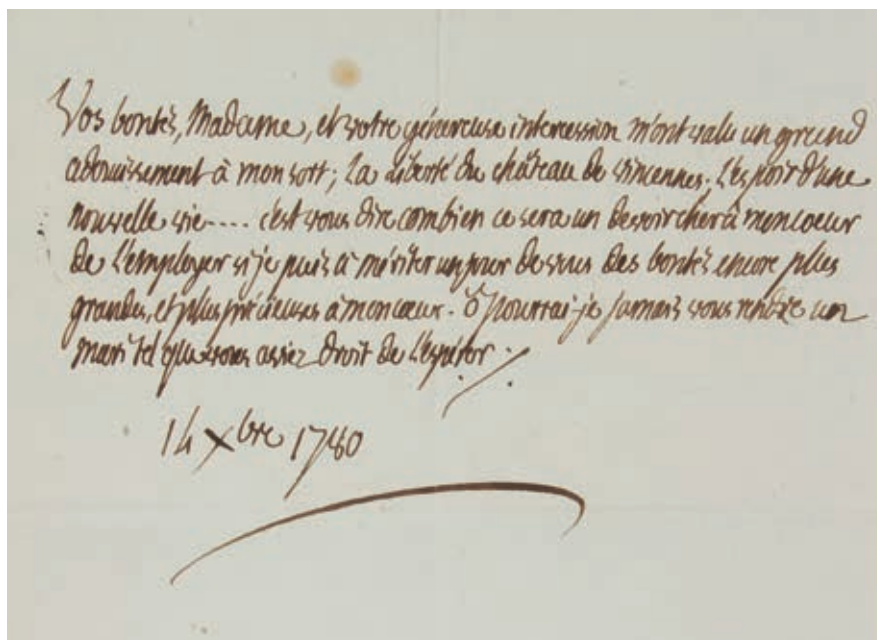 Vos bontés, Madame, et votre génereuse intercession m'ont valu un grand
adouissement à mon sort; La Liberté du château de vincennes. L'espoir d'une
nouvelle vie.... c'est vous dire combien ce sera un devoir cher à mon coeur
de L'employer si je puis à mériter un jour de vous des bontés encore plus
grandes, et plus précieuses à mon coeur. ô pourrai-je jamais vous rendre un
mari tel que vous aviez droit de L'espérer.
14 Xbre 1780